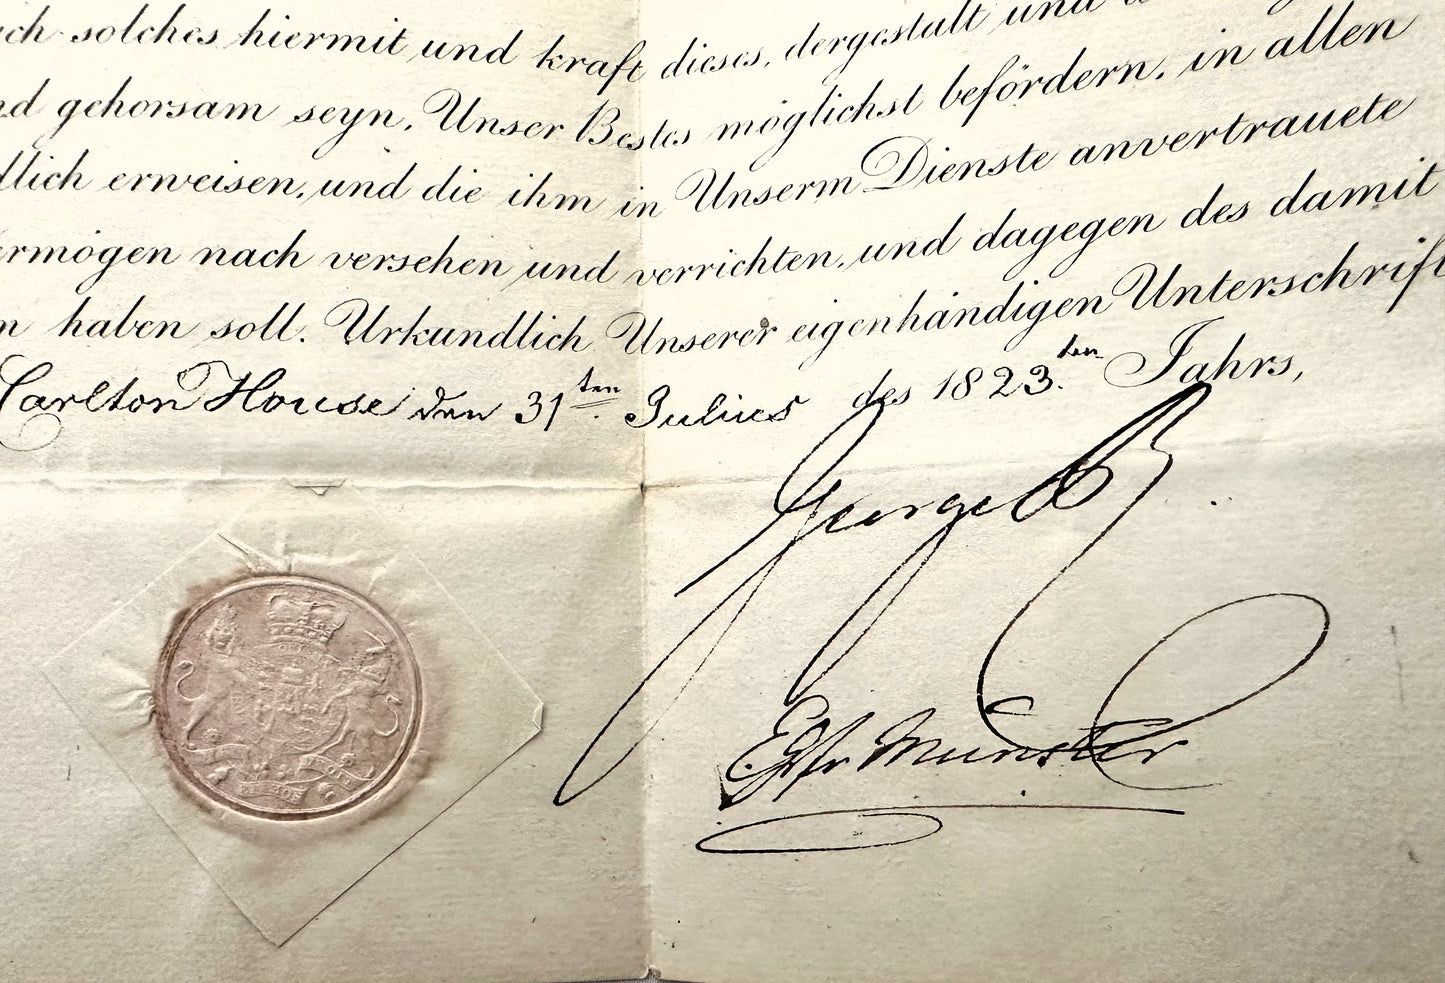 solches hiermit und kraft dieses, dergestalt und
gehorsam seyn, Unser Bestes möglichst befördern, in allen
erweisen, und die ihm in Unserm Dienste anvertrauete
nach versehen und verrichten, und dagegen des damit
haben soll. Urkundlich Unserer eigenhändigen Unterschrift
Carlton House den 31ten Julius des 1823ten Jahrs,
George R
Münster